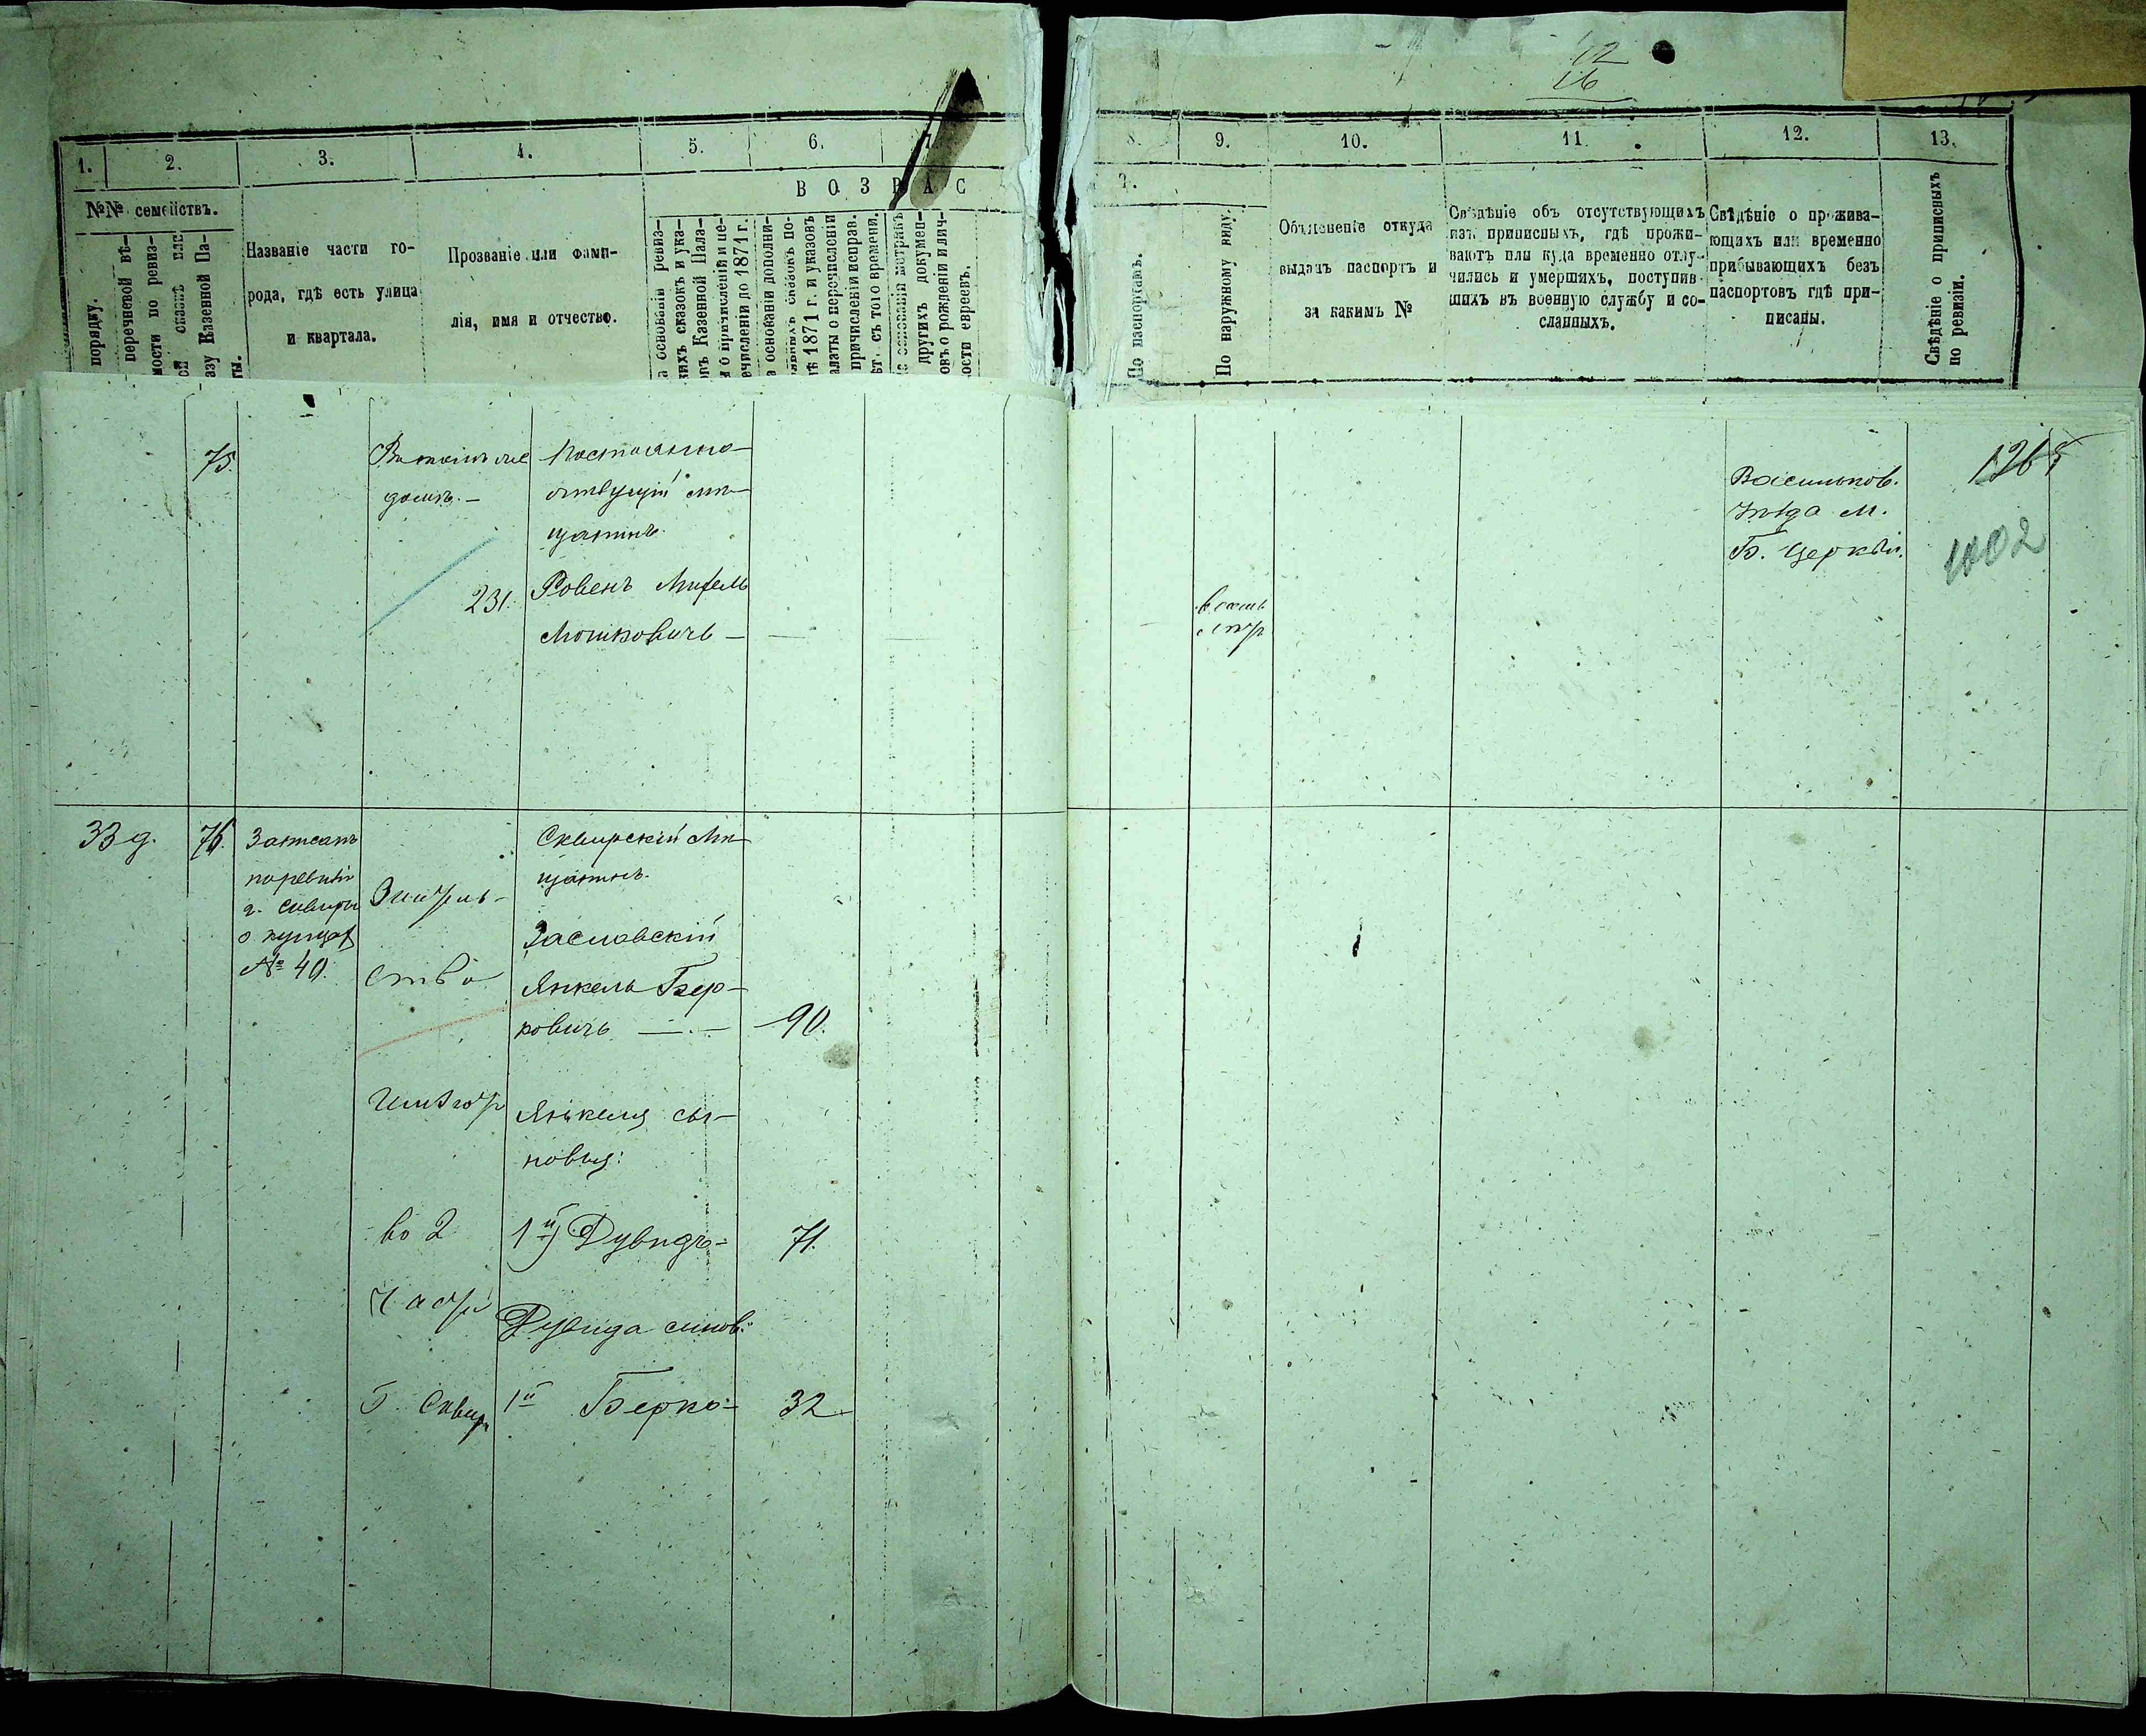 12
16
1.
2.
3.
4.
5.
6.
7.
8.
9.
10.
11.
12.
13.
ВОЗРАС
Т.
№№ семействъ.
порядку.
перечневой вѣ-
мости по ревиз-
ой сказкѣ или
азу Казенной Па-
ты.
Названіе части го-
рода, гдѣ есть улица
и квартала.
Прозваніе или фами-
лія, имя и отчество.
а основаніи ревиз-
кихъ сказокъ и ука-
овъ Казенной Пала-
ы о причисленіи и пе-
ечисленіи до 1871 г.
а основаніи дополни-
сказокъ по-
лѣ 1871 г. и указовъ
алаты о перечисленіи
причисленіи исправ.
ѣт. съ того времени.
основаніи метрикъ
другихъ докумен-
овъ о рожденіи и лич-
ости евреевъ.
По паспортамъ.
По наружному виду.
Объясненіе откуда
выданъ паспортъ и
за какимъ №
Свѣдѣніе объ отсутствующихъ
изъ приписныхъ, гдѣ прожи-
ваютъ или куда временно отлу-
чились и умершихъ, поступив-
шихъ въ военную службу и со-
сланныхъ.
Свѣдѣніе о прожива-
ющихъ или временно
прибывающихъ безъ
паспортовъ гдѣ при-
писаны.
Свѣдѣніе о приписныхъ
по ревизіи.
75.
домѣ.—
Постоянно-
мѣ-
щанинъ.
231.
Ровенъ
Мошковичъ —
Васильков.
уѣзда м.
Б. Церкви.
1265
1002
33 д.
76.
Записанъ
по ревизіи
г. Сквиры
о купцах
№ 40.
ство
во 2
Г. Сквир
Сквирскій Мѣ-
щанинъ.
Заславскій
Янкель Бер-
ковичъ —.—
90.
Янкеля сы-
новья:
1й) Дувидъ-
71.
Дувида синов:
1й Берко-
32